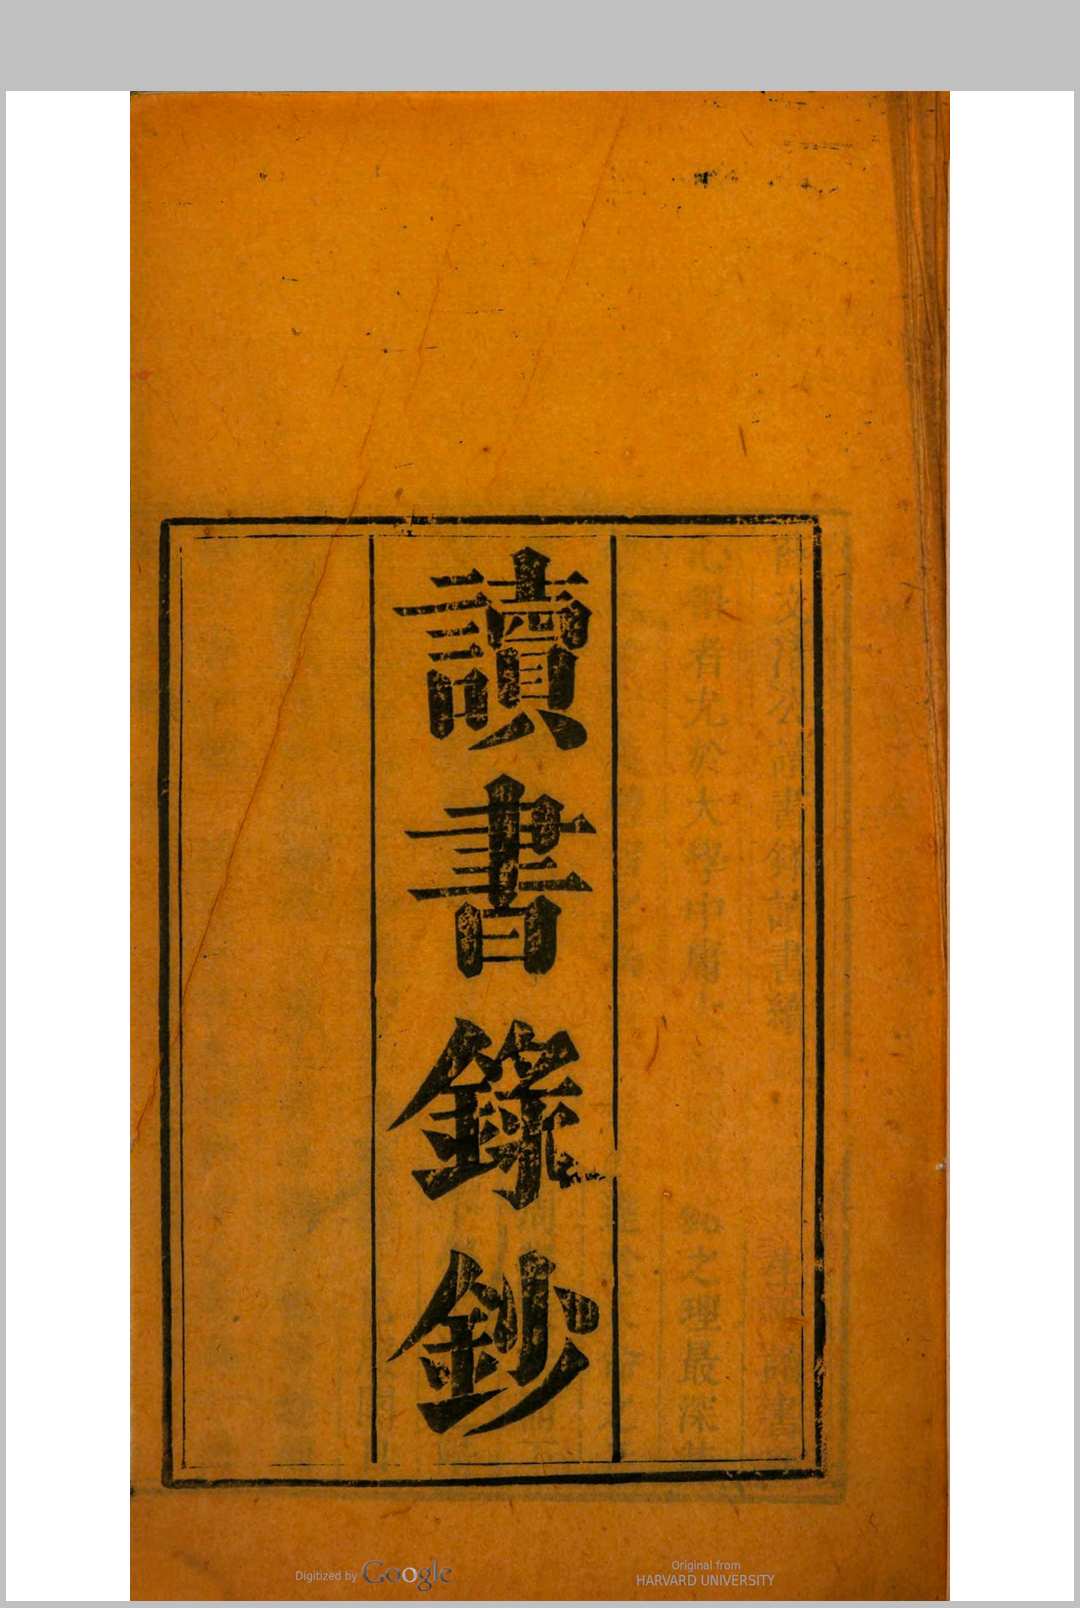 讀書錄鈔
Digitized by Google
Original from
HARVARD UNIVERSITY